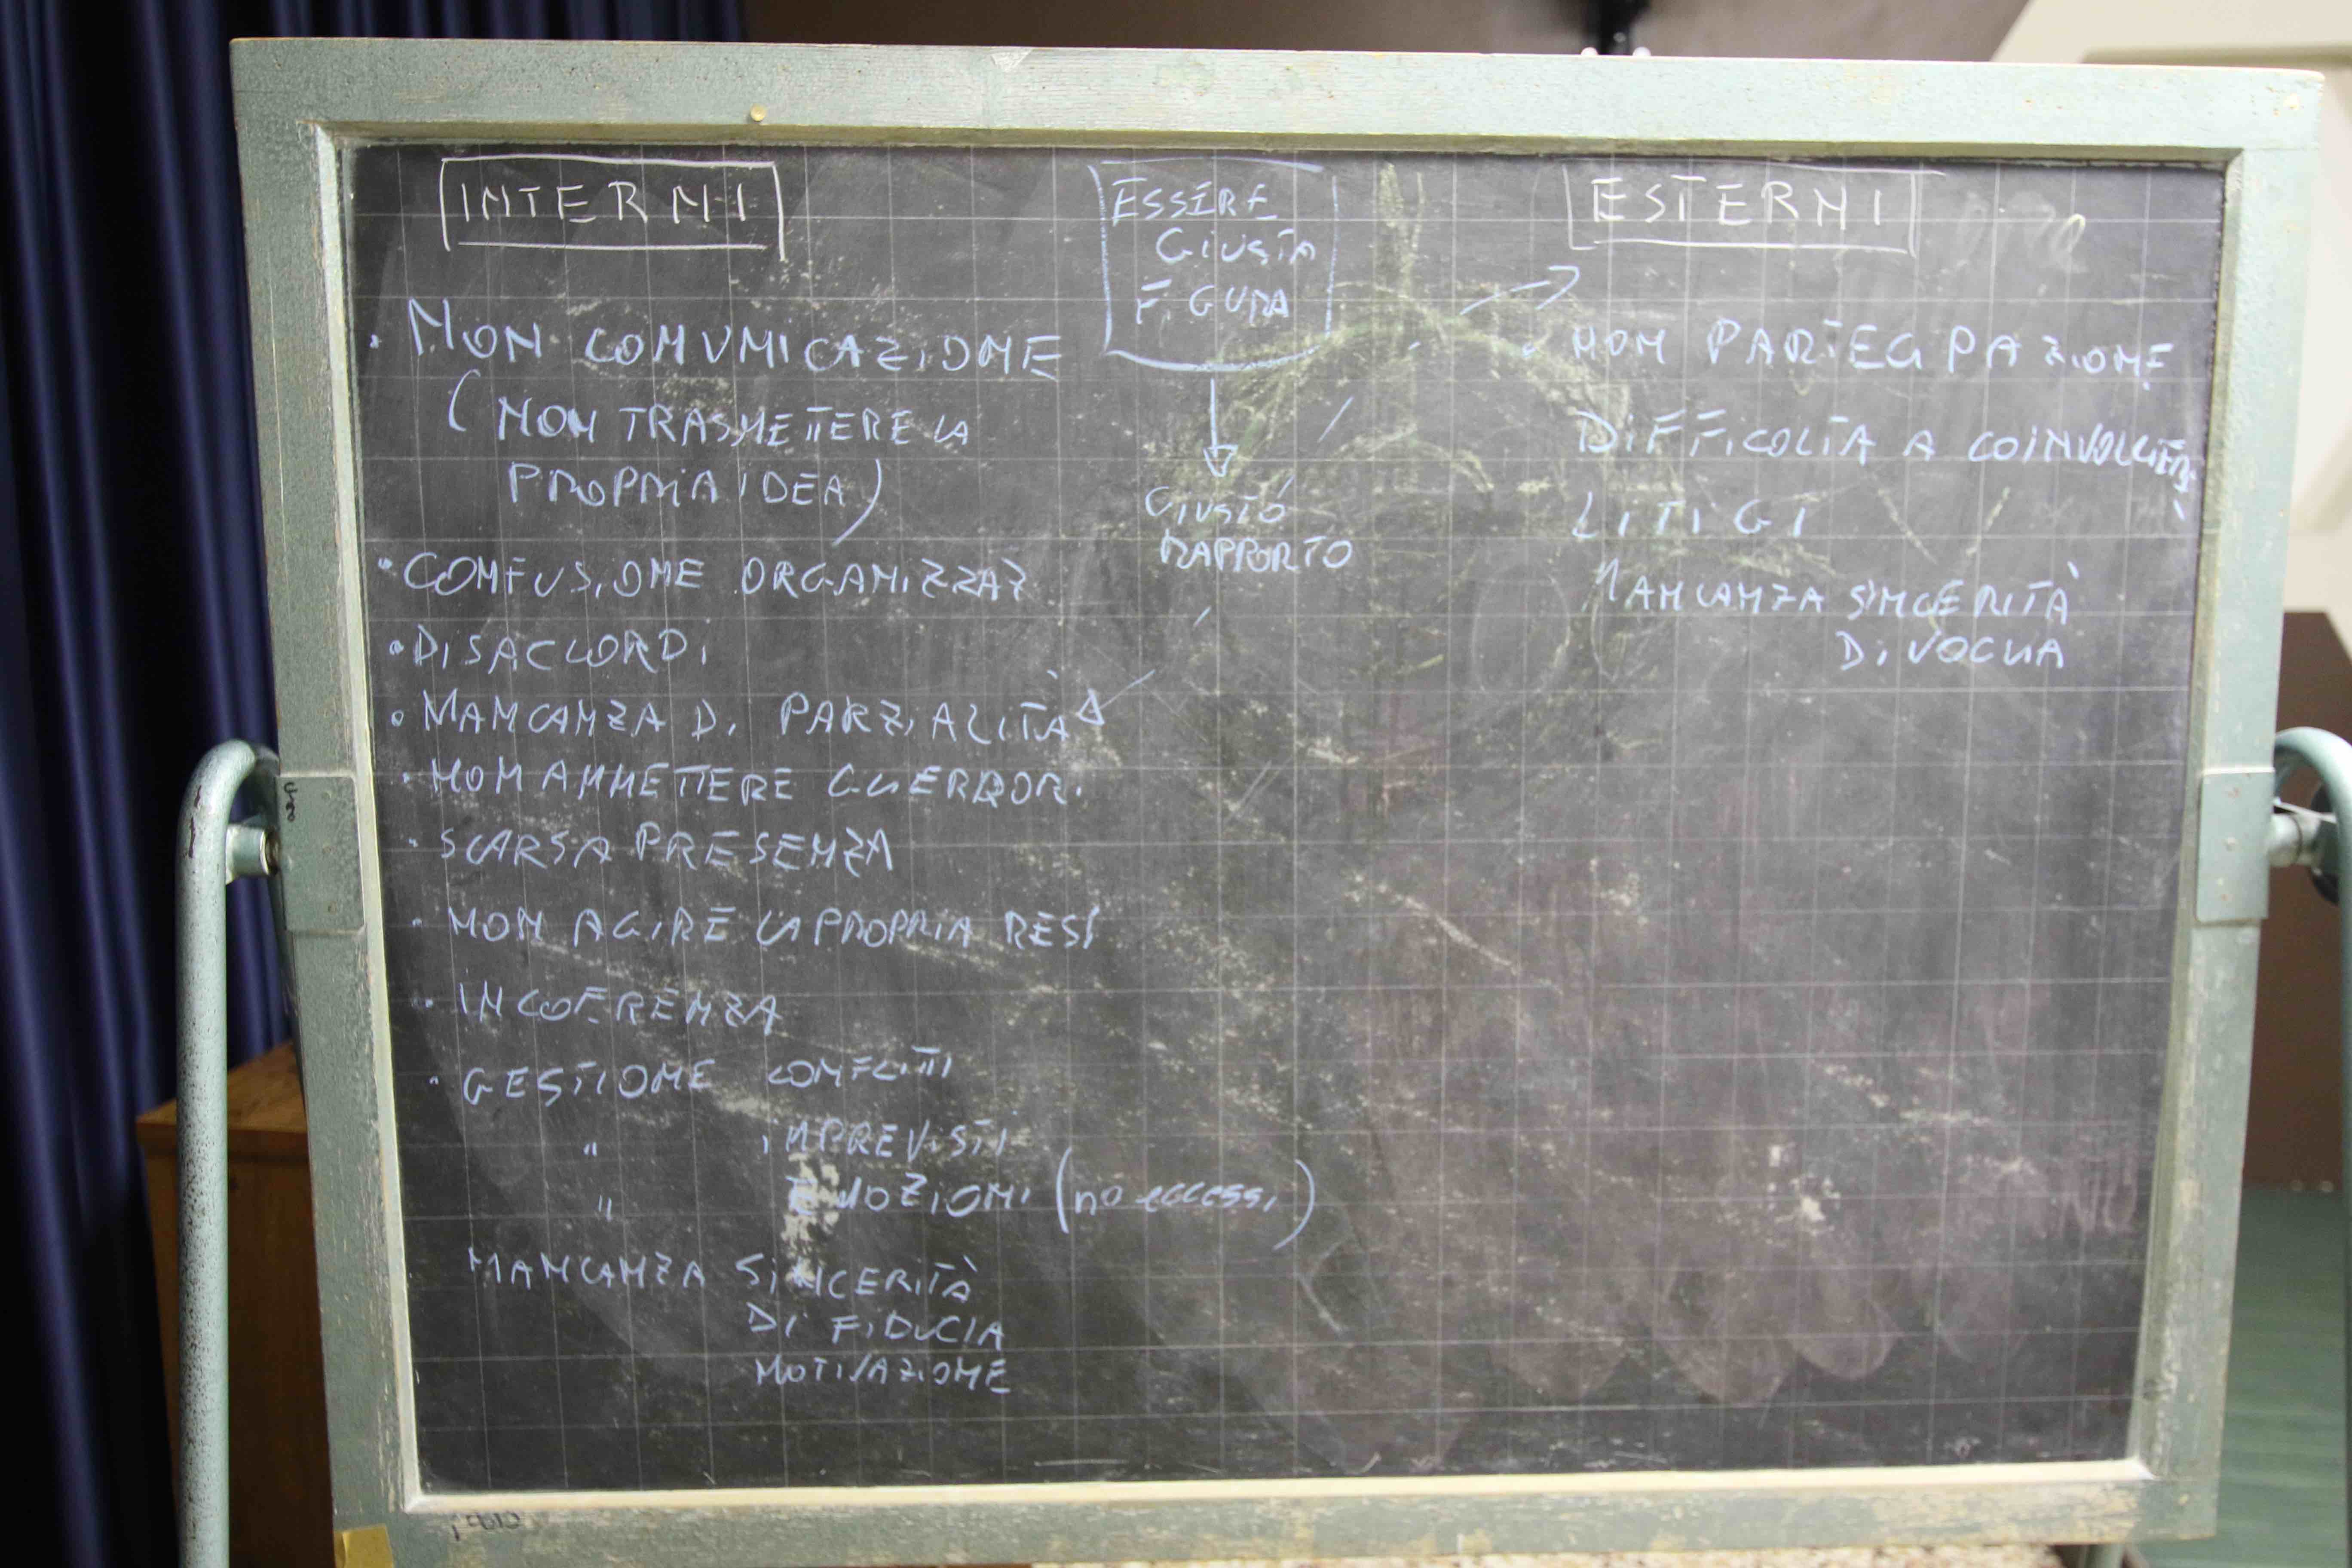 INTERNI
• NON COMUNICAZIONE
(NON TRASMETTERE LA
PROPRIA IDEA)
• CONFUSIONE ORGANIZZAZ
• DISACCORDI
• MANCANZA DI PARZIALITÀ
• NON AMMETTERE GLI ERRORI
• SCARSA PRESENZA
• NON AGIRE LA PROPRIA RESP
• INCOERENZA
• GESTIONE CONFLITTI
" IMPREVISTI
" EMOZIONI (no eccessi)
MANCANZA SINCERITÀ
DI FIDUCIA
MOTIVAZIONE
ESSERE
GIUSTA
FIGURA
GIUSTO
RAPPORTO
ESTERNI
NON PARTECIPAZIONE
DIFFICOLTÀ A COINVOLGERE
LITIGI
MANCANZA SINCERITÀ
DI VOGLIA